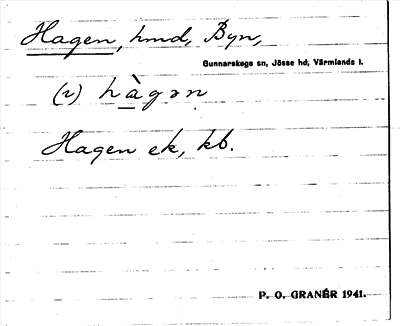 Hagen, hmd, Byn,
Gunnarskogs sn, Jösse hd, Värmlands l.
(v) hàgən
Hagen ek, kb.
P. O. GRANÉR 1941.